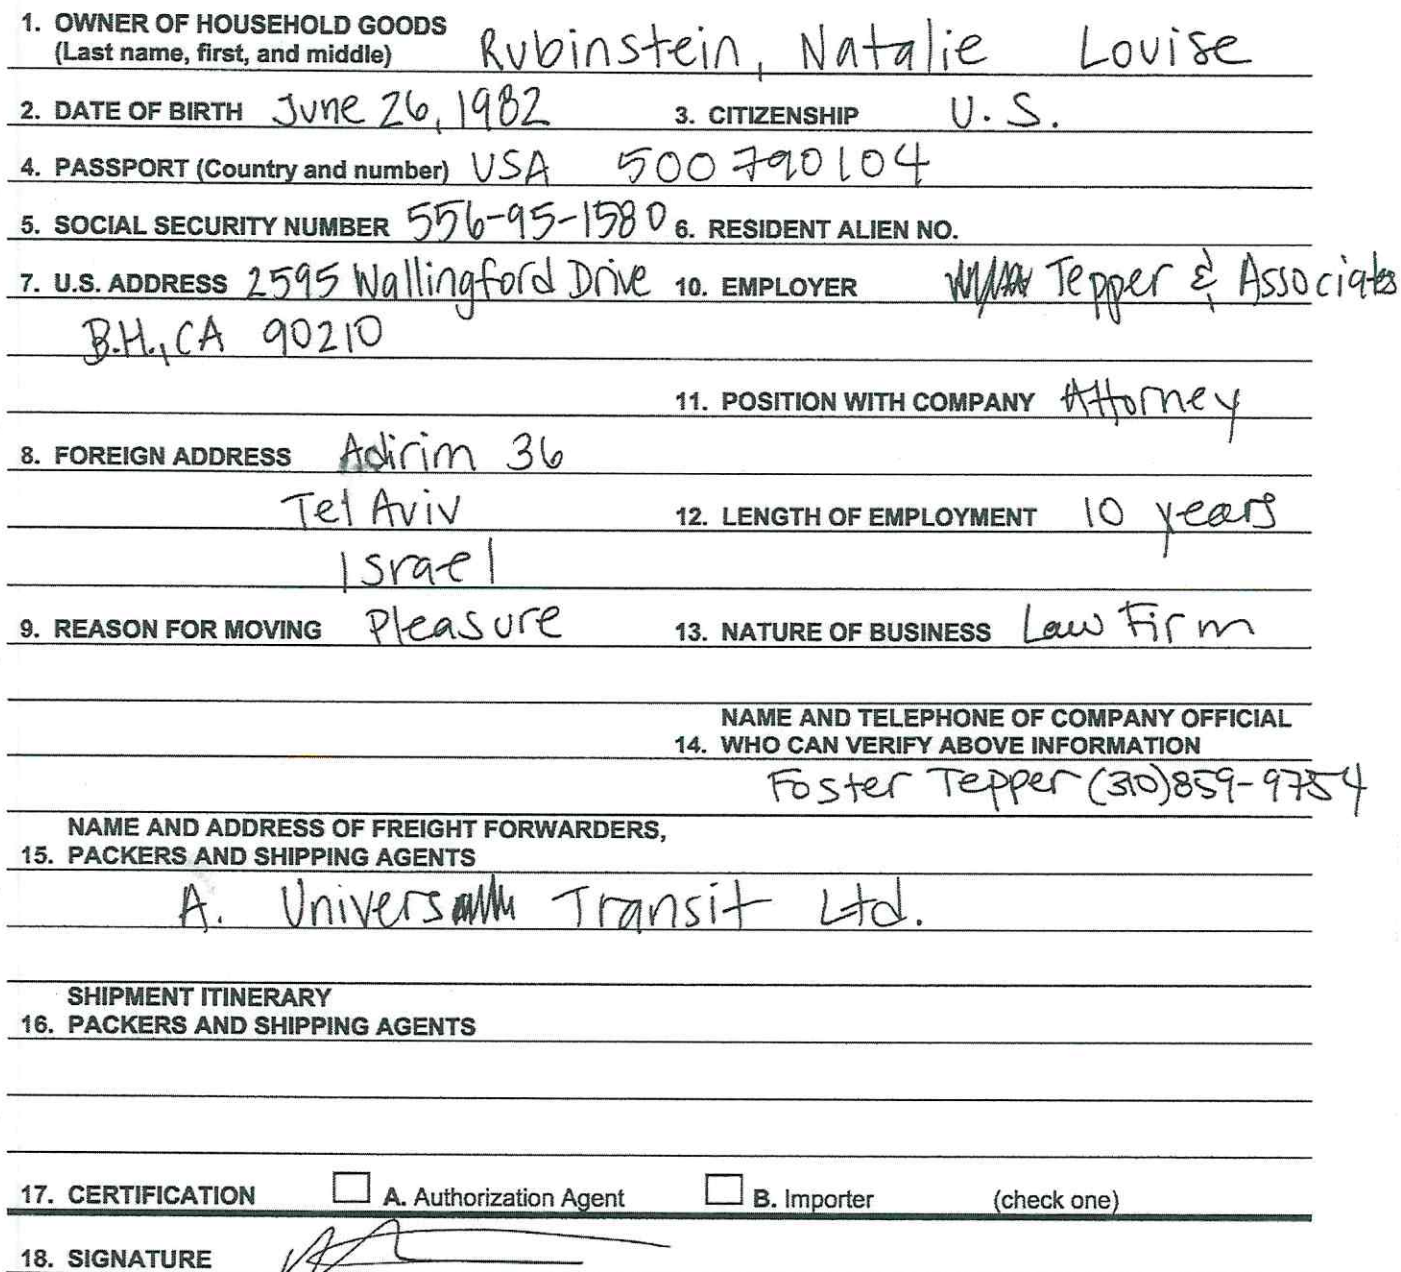 1. OWNER OF HOUSEHOLD GOODS
(Last name, first, and middle) Rubinstein, Natalie Louise
2. DATE OF BIRTH June 26, 1982 3. CITIZENSHIP U.S.
4. PASSPORT (Country and number) USA 500790104
5. SOCIAL SECURITY NUMBER 556-95-1580 6. RESIDENT ALIEN NO.
7. U.S. ADDRESS 2595 Wallingford Drive 10. EMPLOYER Tepper & Associates
B.H., CA 90210
11. POSITION WITH COMPANY Attorney
8. FOREIGN ADDRESS Adirim 36
Tel Aviv 12. LENGTH OF EMPLOYMENT 10 years
Israel
9. REASON FOR MOVING Pleasure 13. NATURE OF BUSINESS Law Firm
NAME AND TELEPHONE OF COMPANY OFFICIAL
14. WHO CAN VERIFY ABOVE INFORMATION
Foster Tepper (310)859-9754
NAME AND ADDRESS OF FREIGHT FORWARDERS,
15. PACKERS AND SHIPPING AGENTS
A. Univers Transit Ltd.
SHIPMENT ITINERARY
16. PACKERS AND SHIPPING AGENTS
17. CERTIFICATION A. Authorization Agent B. Importer (check one)
18. SIGNATURE